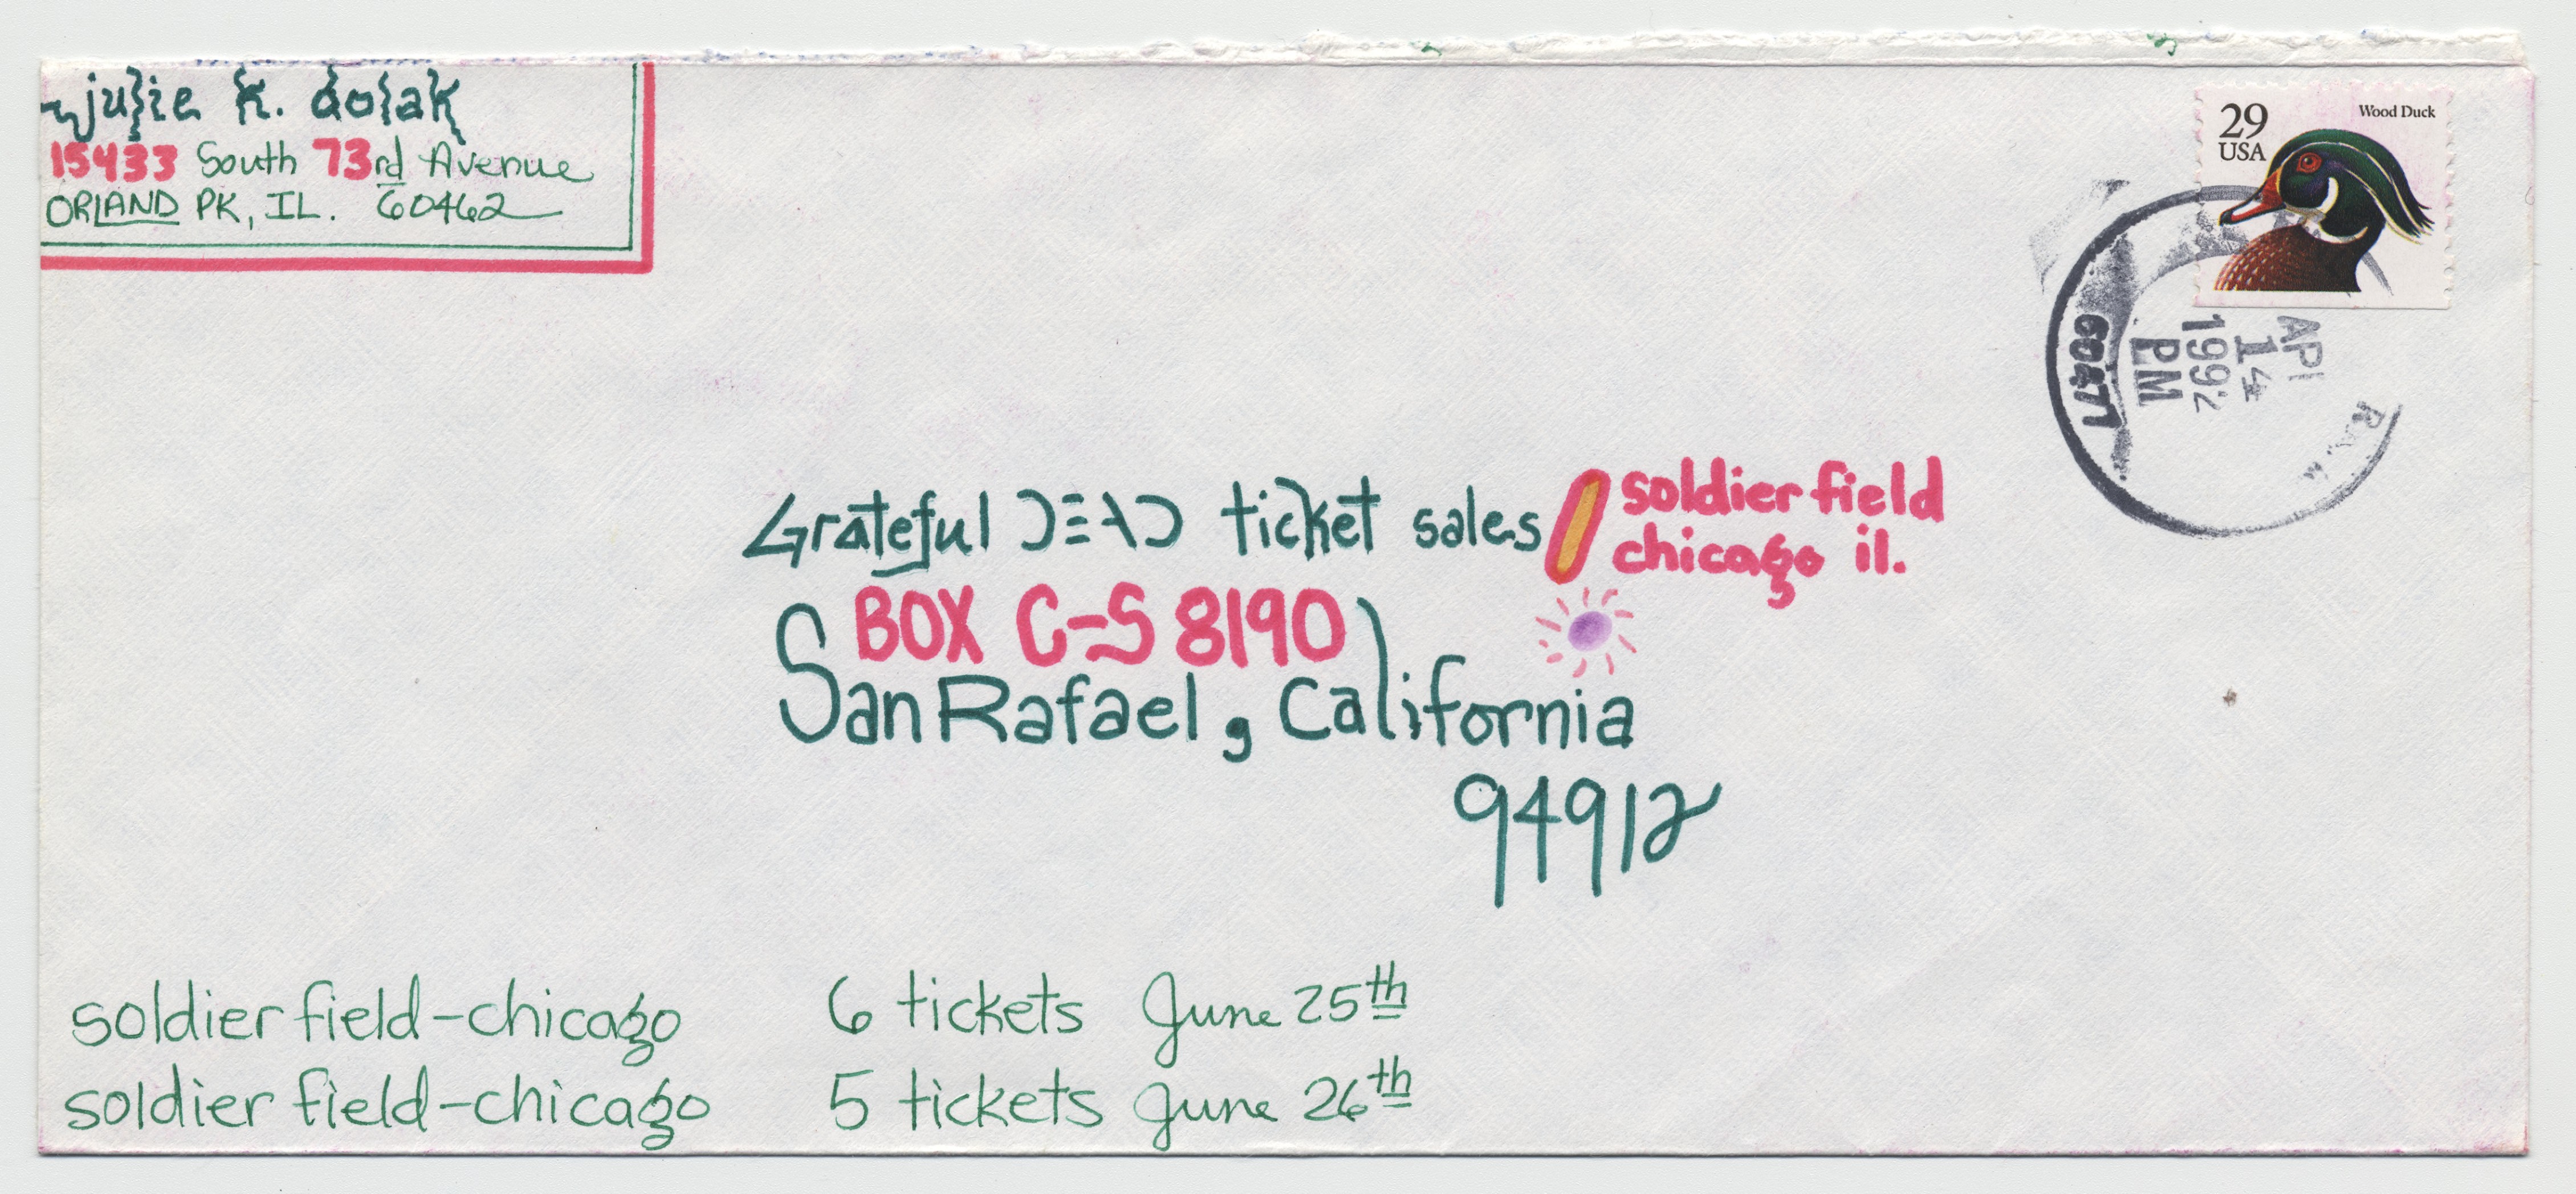 julie k. dolak
15433 South 73rd Avenue
ORLAND PK, IL. 60462
29
USA
Wood Duck
APR
14
1992
PM
60477
Grateful DEAD ticket sales
soldier field
chicago il.
BOX C-S 8190
San Rafael, California
94912
soldier field-chicago 6 tickets June 25th
soldier field-chicago 5 tickets June 26th